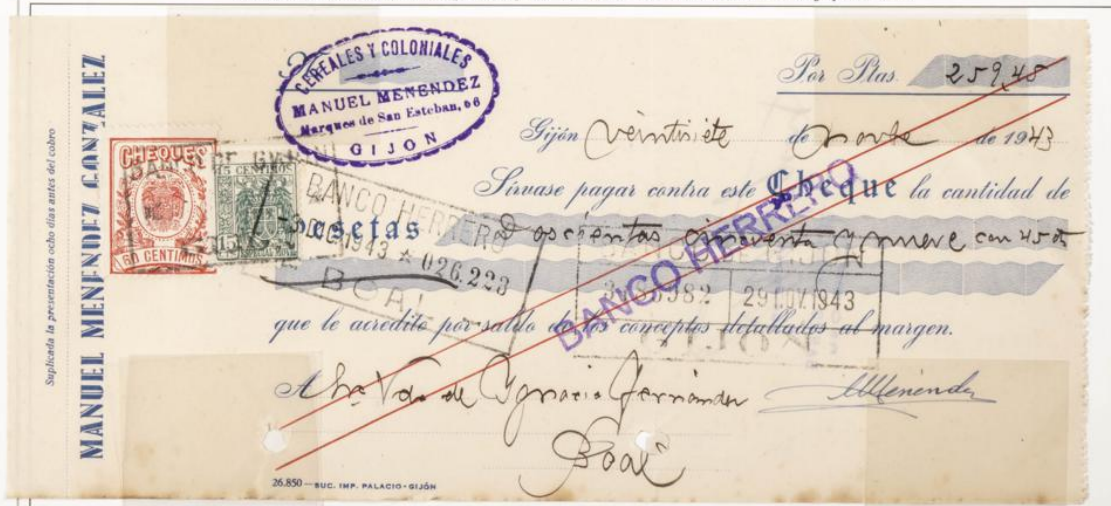 Suplicada la presentación ocho días antes del cobro
MANUEL MENENDEZ GONZALEZ
CEREALES Y COLONIALES
MANUEL MENENDEZ
Marques de San Esteban, 66
GIJON
Por Ptas. 259,45
Gijón veintisiete de novbe de 1943
Sírvase pagar contra este Cheque la cantidad de
Pesetas Doscientas cincuenta y nueve con 45 cts
que le acredito por saldo de los conceptos detallados al margen.
A Vda de Ignacio Fernández
Boal
MMenéndez
CHEQUES
60 CENTIMOS
15 CENTIMOS
BANCO HERRERO
1943 * 026.223
BOAL
BANCO HERRERO
29 NOV. 1943
GIJON
26.850 — SUC. IMP. PALACIO - GIJÓN